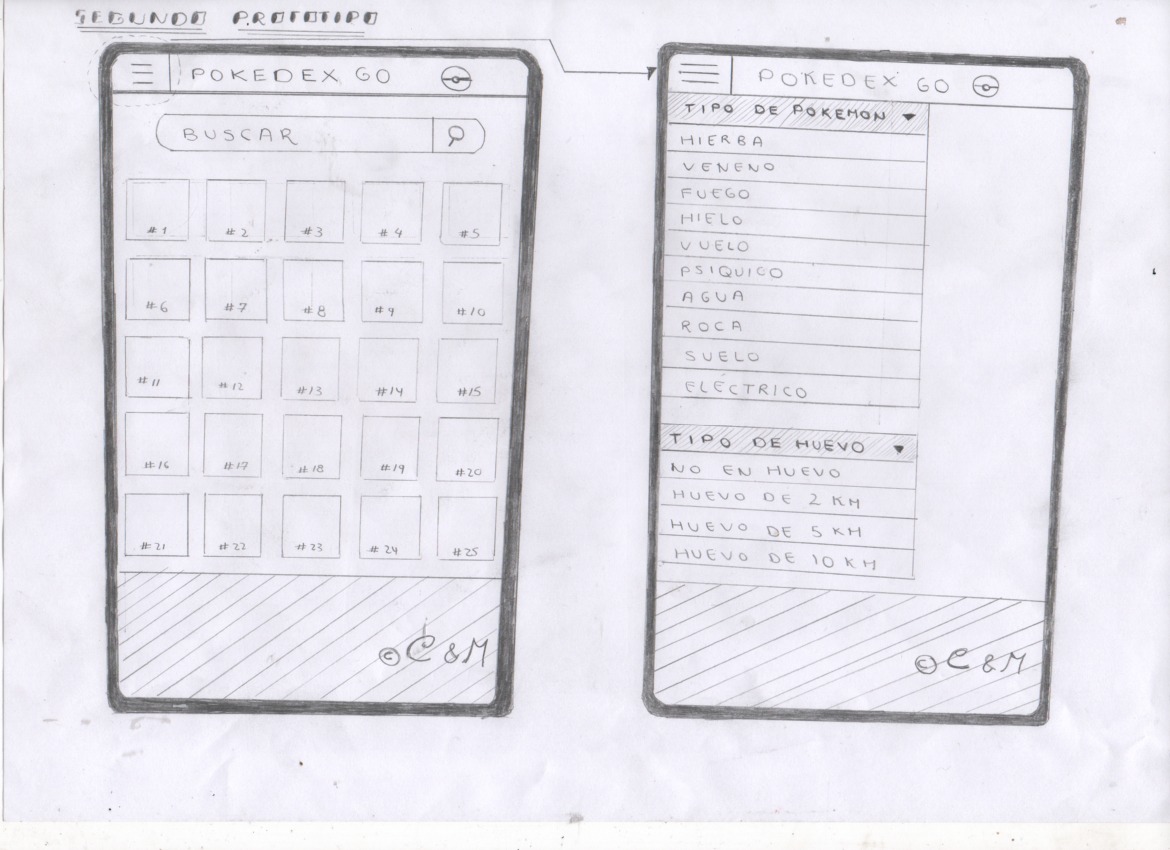 SEGUNDO PROTOTIPO
POKEDEX GO
BUSCAR
#1 #2 #3 #4 #5
#6 #7 #8 #9 #10
#11 #12 #13 #14 #15
#16 #17 #18 #19 #20
#21 #22 #23 #24 #25
© C & M
POKEDEX GO
TIPO DE POKEMON
HIERBA
VENENO
FUEGO
HIELO
VUELO
PSIQUICO
AGUA
ROCA
SUELO
ELECTRICO
TIPO DE HUEVO
NO EN HUEVO
HUEVO DE 2 KM
HUEVO DE 5 KM
HUEVO DE 10 KM
© C & M